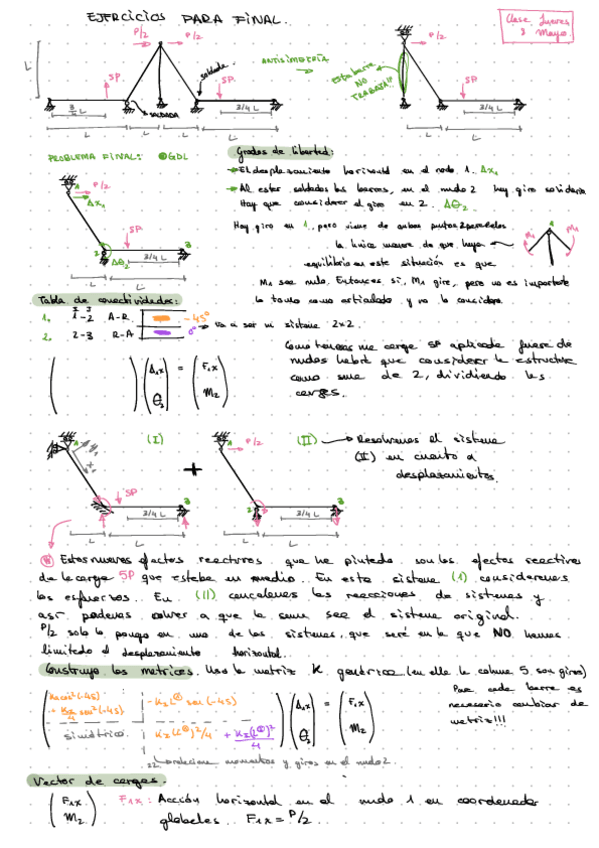 EJERCICIOS PARA FINAL.
Clase Jueves
9 Mayo.
P/2
P/2
P/2
soldada
ANTISIMETRÍA
Esta barra
NO
TRABAJA!!
L
5P
5P
5P
SOLDADA
3/4 L
3/4 L
L
L
L
L
L
L
PROBLEMA FINAL:
GDL
Grados de libertad:
El desplazamiento horizontal en el nodo 1. Δx₁
Al estar soldadas las barras, en el nudo 2 hay giro solidario
Hay que considerar el giro en 2. Δθ₂
Hay giro en 1, pero viene de ambas
la única manera de que haya
equilibrio en esta situación es que
M₁ sea nulo. Entonces sí, M₁ gire, pero no es importante
lo tomo como articulado y no lo considero
M₁
M₁
P/2
Δx₁
5P
Δθ₂
2
3
3/4 L
L
L
Tabla de conectividades:
I J
1. 1-2 A-R -45°
2. 2-3 R-A 0°
va a ser un sistema 2x2.
Como tenemos una carga 5P aplicada fuera de
nudos habrá que considerar la estructura
como suma de 2, dividiendo las
cargas.
Δ₁x = F₁x
θ₂ M₂
(I)
(II)
Resolvemos el sistema
(II) en cuanto a
desplazamientos.
P/2
5P
+
2
3
3/4 L
3/4 L
L
L
L
L
Estos nuevos efectos reactivos que he pintado son los efectos reactivos
de la carga 5P que estaba en medio. En este sistema (I) consideramos
los esfuerzos. En (II) cancelamos las reacciones de sistemas y
así podemos volver a que la suma sea el sistema original.
P/2 solo lo pongo en uno de los sistemas, que será en la que NO hemos
limitado el desplazamiento horizontal.
Construyo las matrices. Uso la matriz K genérica (en ella la columna 5 son giros)
Para cada barra es
necesario cambiar de
matriz!!!
simétrico
Δ₁x = F₁x
θ₂ M₂
22. relacionan momentos y giros en el nudo 2.
Vector de cargas.
F₁x
M₂
F₁x: Acción horizontal en el nudo 1 en coordenadas
globales. F₁x = P/2.